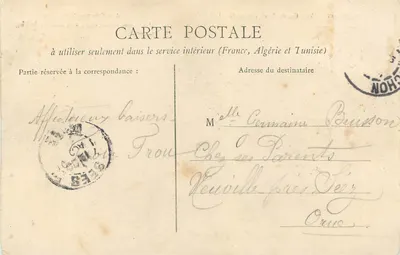 CARTE POSTALE
à utiliser seulement dans le service intérieur (France, Algérie et Tunisie)
Partie réservée à la correspondance :
Adresse du destinataire
Affectueux baisers
Mlle Germaine Buisson
Chez ses Parents
Neuville près Séez
Orne
CHON
SÉES